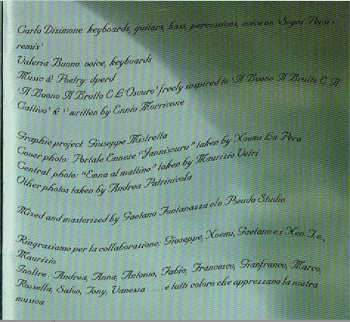 Carlo Disimone: keyboards, guitars, bass, percussions, voice on 'Sogni Persi-
remix'
Valeria Buono: voice, keyboards
Music & Poetry: dperd
'Il Buono Il Brutto E L' Oscuro' freely inspired to 'Il Buono Il Brutto E Il
Cattivo' & written by Ennio Morricone
Graphic project: Giuseppe Mistretta
Cover photo: Portale Ennese "Janniscuru" taken by Noemi La Pera
Central photo: "Enna al mattino" taken by Maurizio Vetri
Other photos taken by Andrea Patrinicola
Mixed and masterized by Gaetano Fontanazza Pseudo Studio
Ringraziamo per la collaborazione: Giuseppe, Noemi, Gaetano e
Maurizio.
Inoltre: Andrea, Anna, Antonio, Fabio, Francesco, Gianfranco, Marco,
Rossella, Salvo, Tony, Vanessa ..... e tutti coloro che apprezzano la nostra
musica